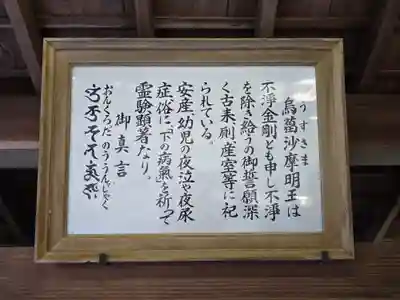 うすさま
烏蒭沙摩明王は
不淨金剛とも申し不淨
を除き給うの御誓願深
く古来厠産室等に祀
られている。
安産幼児の夜泣や夜尿
症俗に「下の病氣」を祈って
霊験顕著なり。
御真言
おんくろだ のううんじゃく